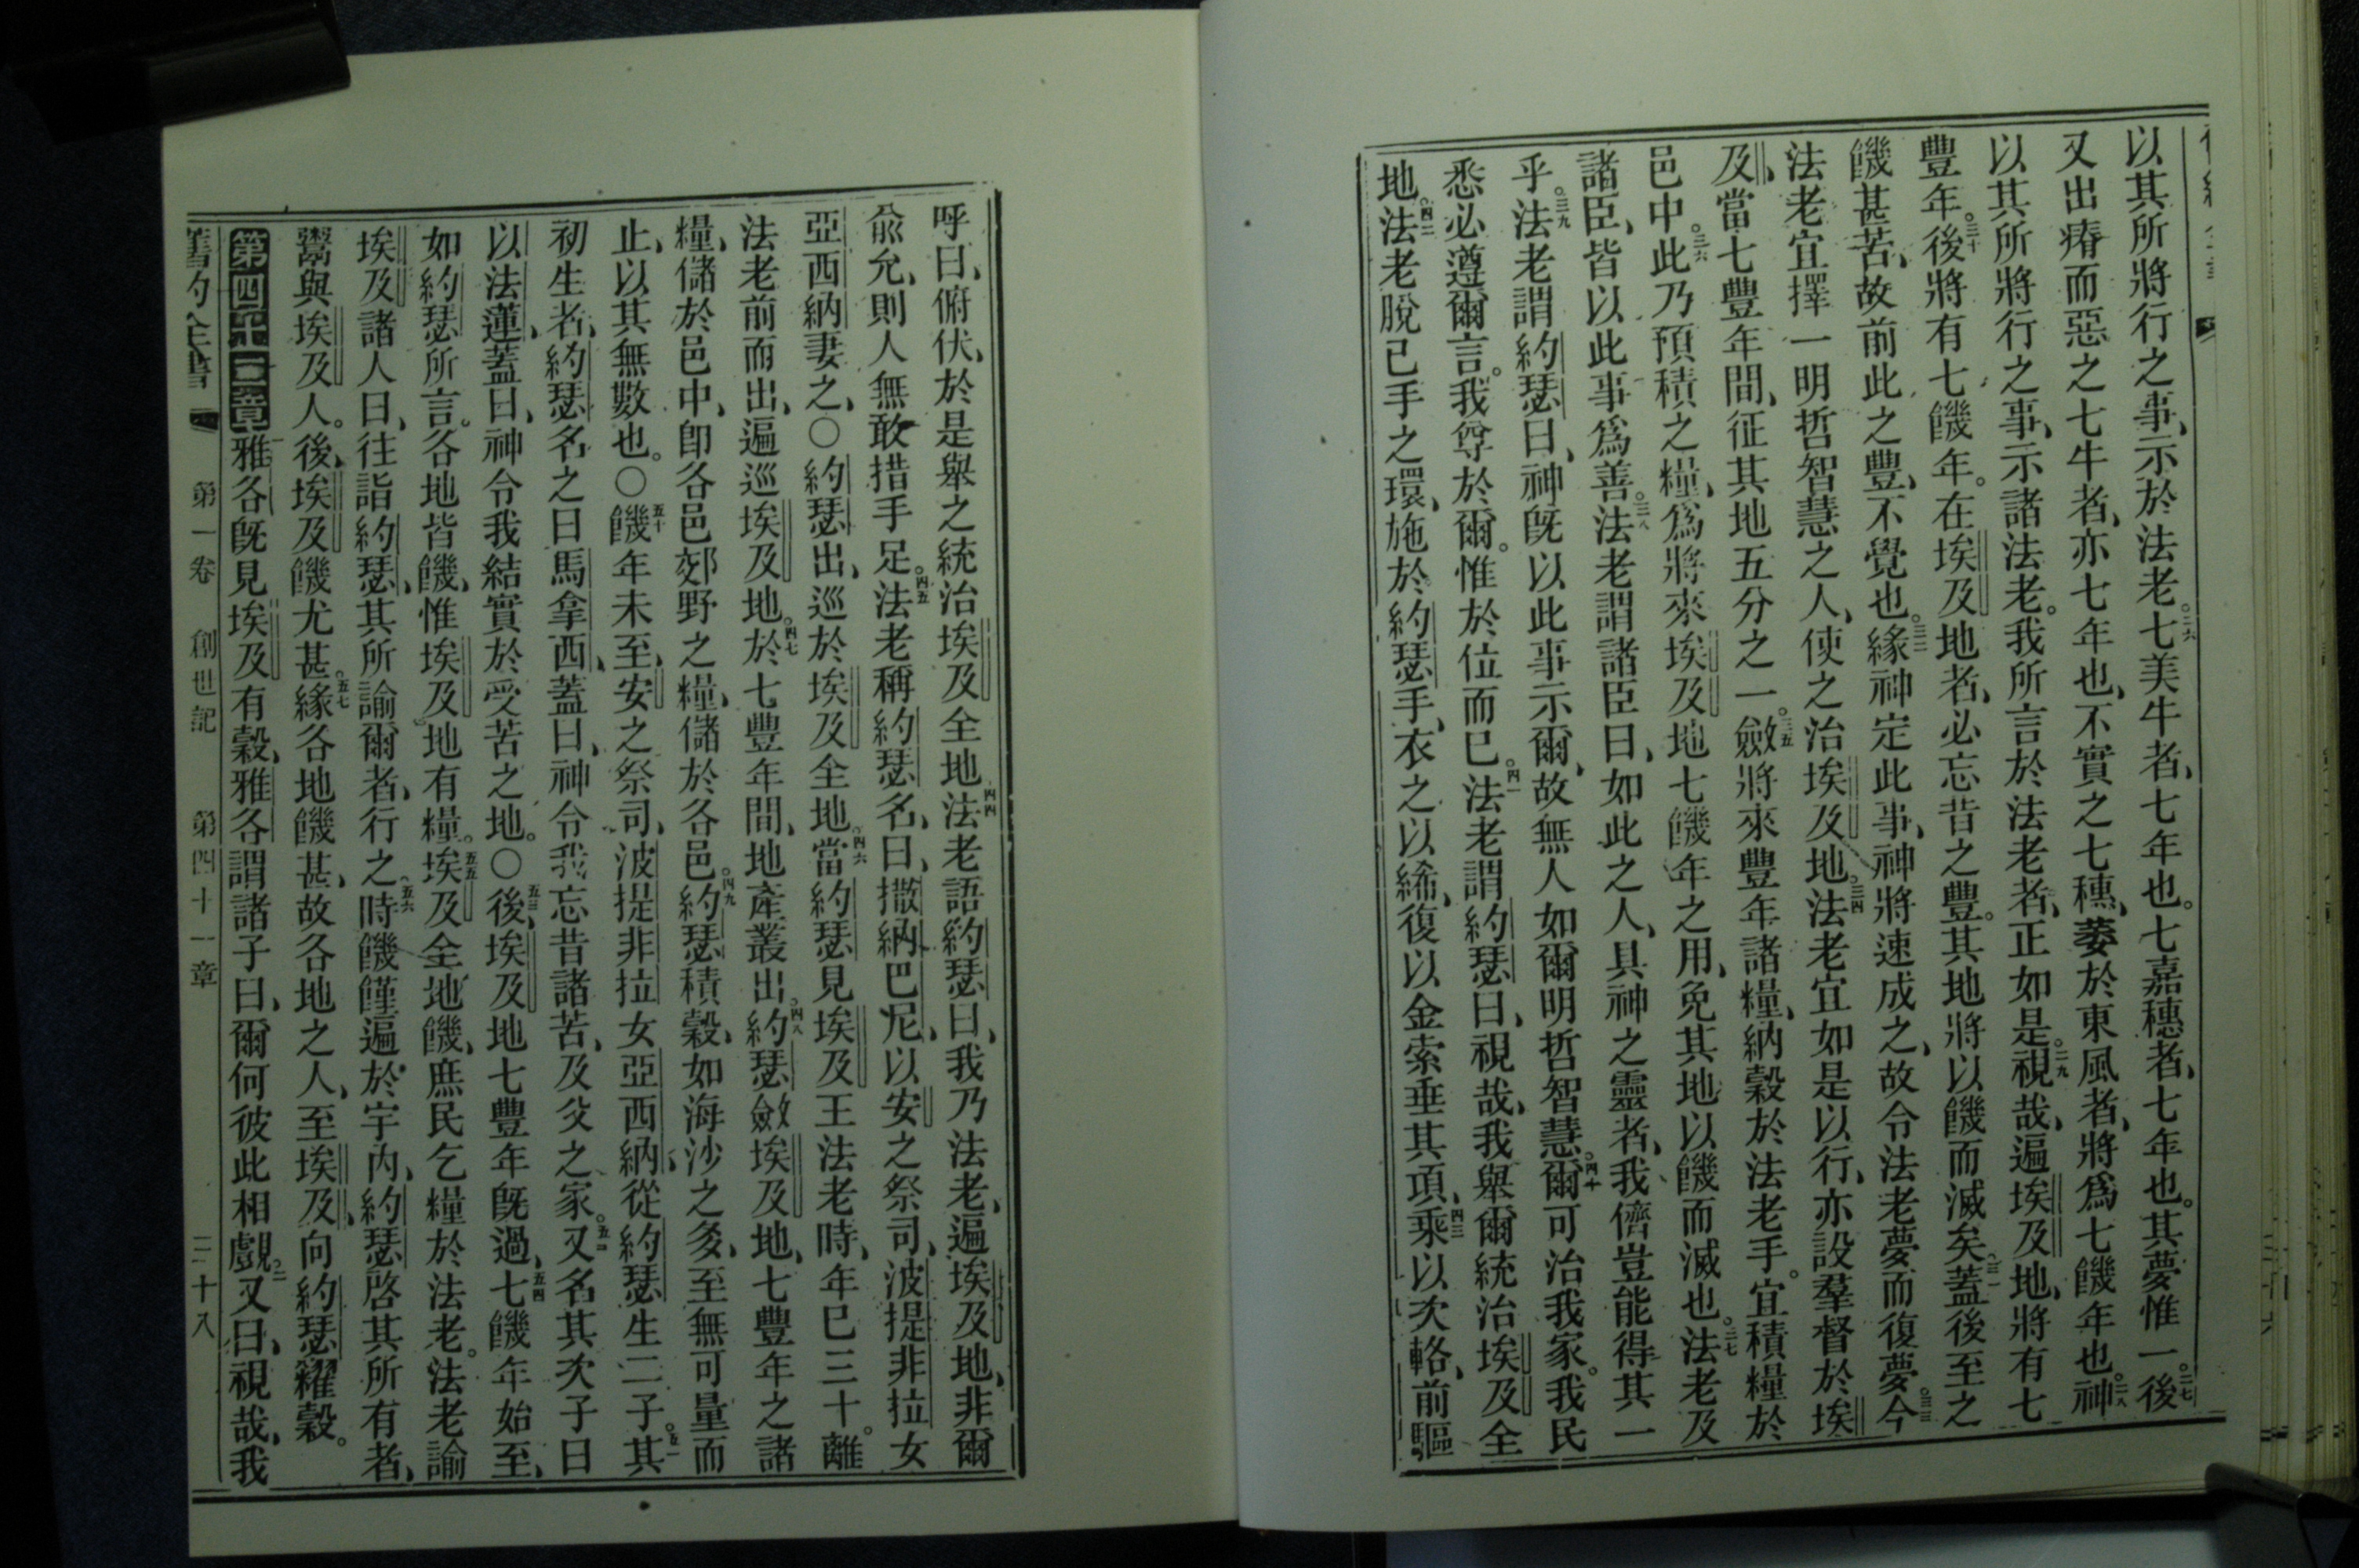 以其所將行之事、示於法老。二六七美牛者、七年也。七嘉穗者、七年也。其夢惟一。二七後
又出瘠而惡之七牛者、亦七年也、不實之七穗、萎於東風者、將爲七饑年也。二八神
以其所將行之事、示諸法老。我所言於法老者、正如是。二九視哉、遍埃及地、將有七
豐年。三十後將有七饑年。在埃及地者、必忘昔之豐。其地將以饑而滅矣。三一蓋後至之
饑甚苦、故前此之豐、不覺也。三二緣神定此事、神將速成之、故令法老夢而復夢。三三今
法老宜擇一明哲智慧之人、使之治埃及地。三四法老宜如是以行、亦設羣督於埃
及、當七豐年間、征其地五分之一。三五斂將來豐年諸糧、納穀於法老手。宜積糧於
邑中。三六此乃預積之糧、爲將來埃及地七饑年之用、免其地以饑而滅也。三七法老及
諸臣、皆以此事爲善。三八法老謂諸臣曰、如此之人、具神之靈者、我儕豈能得其一
乎。三九法老謂約瑟曰、神旣以此事示爾、故無人如爾明哲智慧。四十爾可治我家。我民
悉必遵爾言。我尊於爾。惟於位而已。四一法老謂約瑟曰、視哉、我舉爾統治埃及全
地。四二法老脫己手之環、施於約瑟手、衣之以絺、復以金索垂其項、四三乘以次輅、前驅
呼曰、俯伏、於是舉之統治埃及全地四四法老語約瑟曰、我乃法老、遍埃及地、非爾
兪允、則人無敢措手足。四五法老稱約瑟名、曰、撒納巴尼、以安之祭司、波提非拉女
亞西納妻之、○約瑟出、巡於埃及全地。四六當約瑟見埃及王法老時、年已三十。離
法老前而出、遍巡埃及地。四七於七豐年間、地產叢出。四八約瑟斂埃及地、七豐年之諸
糧、儲於邑中、卽各邑郊野之糧、儲於各邑。四九約瑟積穀、如海沙之多、至無可量而
止、以其無數也。○五十饑年未至、安之祭司、波提非拉女亞西納、從約瑟生二子。五一其
初生者、約瑟名之曰馬拿西、蓋曰、神令我忘昔諸苦、及父之家。五二又名其次子曰
以法蓮、蓋曰、神令我結實於受苦之地。○五三後、埃及地七豐年旣過、五四七饑年始至、
如約瑟所言。各地皆饑、惟埃及地有糧。五五埃及全地饑、庶民乞糧於法老。法老諭
埃及諸人曰、往詣約瑟、其所諭爾者、行之、五六時饑饉遍於宇內、約瑟啓其所有者、
鬻與埃及人。後、埃及饑尤甚。五七緣各地饑甚、故各地之人、至埃及、向約瑟糴穀。
第四十二章雅各旣見埃及有穀、雅各謂諸子曰、爾何彼此相覷。二又曰、視哉、我
舊約全書 第一卷 創世記 第四十一章 三十八